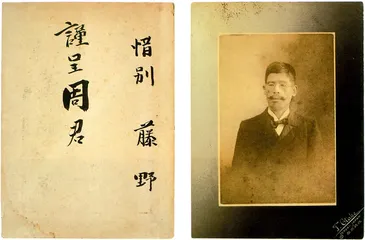 惜别
藤野
謹呈
周君